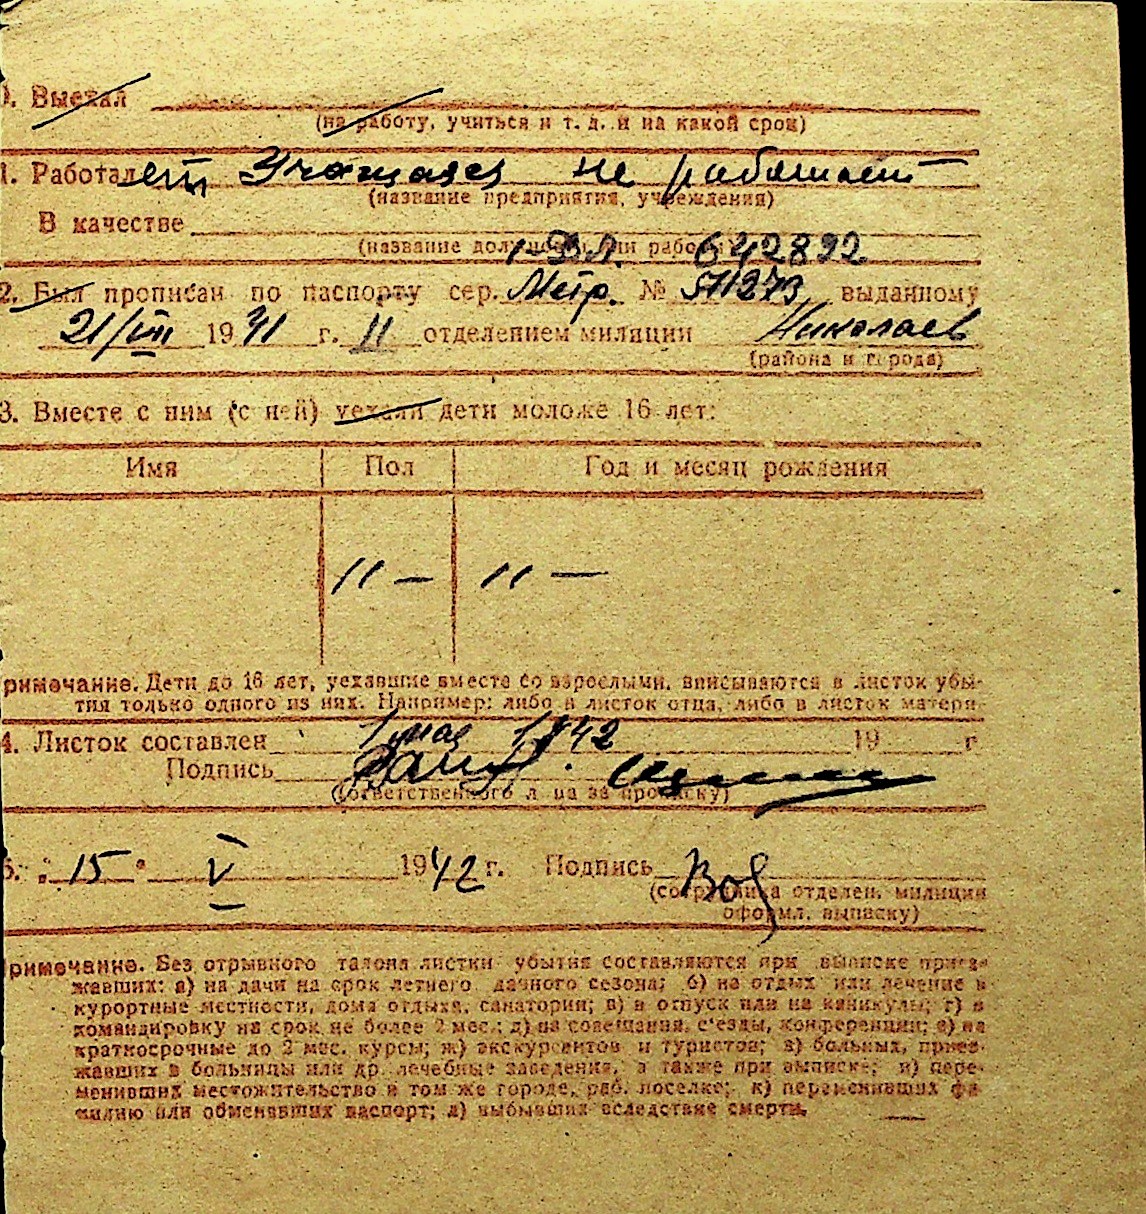 0. Выехал
(на работу, учиться и т. д. и на какой срок)
1. Работает Учащаяся не работает
(название предприятия, учреждения)
В качестве
(название должности или работы)
642892
2. Был прописан по паспорту сер. Метр. № 571273 выданному
21/VIII 1941 г. II отделением милиции Николаев
(района и города)
3. Вместе с ним (с ней) уехали дети моложе 16 лет:
Имя Пол Год и месяц рождения
11 — 11 —
римечание. Дети до 16 лет, уехавшие вместе со взрослыми, вписываются в листок убы-
тия только одного из них. Например: либо в листок отца, либо в листок матери.
4. Листок составлен 1 мая 1942 19 г
Подпись
(ответственного лица за прописку)
5. "15" V 1942 г. Подпись
(сотрудника отделен. милиции
оформл. выписку)
римечание. Без отрывного талона листки убытия составляются при выписке приез-
жавших: а) на дачи на срок летнего дачного сезона; б) на отдых или лечение в
курортные местности, дома отдыха, санатории; в) в отпуск или на каникулы; г) в
командировку на срок не более 2 мес.; д) на совещания, с'езды, конференции; е) на
краткосрочные до 2 мес. курсы; ж) экскурсантов и туристов; з) больных, приез-
жавших в больницы или др. лечебные заведения, а также при выписке; и) пере-
менивших местожительство в том же городе, раб. поселке; к) переменивших фа
милию или обменявших паспорт; л) выбывших вследствие смерти.